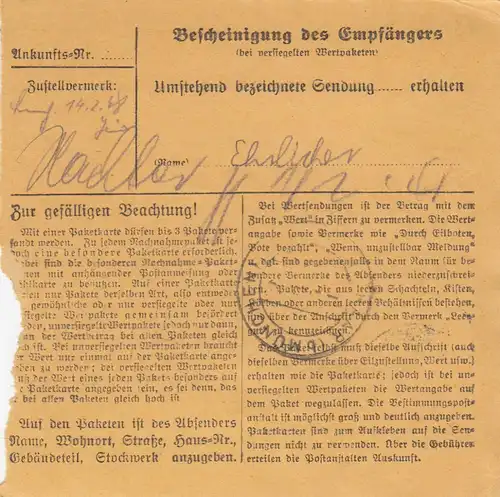 Bescheinigung des Empfängers
(bei versiegelten Wertpaketen)
Ankunfts-Nr.
Zustellvermerk:
Umstehend bezeichnete Sendung ..... erhalten
14.2.48
(Name)
Zur gefälligen Beachtung!
Mit einer Paketkarte dürfen bis 3 Pakete ver-
sandt werden. Zu jedem Nachnahmepaket ist je-
doch eine besondere Paketkarte erforderlich.
bei sind die besonderen Nachnahme-Paket-
ten mit anhängender Postanweisung oder
zu benutzen. Auf einer Paketkarte
nur Pakete derselben Art, also entweder
gewöhnliche oder nur versiegelte oder
versiegelte Wertpakete gemeinsam befördert
den, unversiegelte Wertpakete jedoch nur dann,
der Wertbetrag bei allen Paketen gleich
ist. Bei unversiegelten Wertpaketen darf
Wert nur einmal auf der Paketkarte ange-
werden; bei versiegelten Wertpaketen
der Wert eines jeden Pakets besonders auf
Paketkarte angegeben sein, es sei denn, das
bei allen Paketen gleich hoch ist
Auf den Paketen ist des Absenders
Name, Wohnort, Straße, Haus-Nr.,
Gebäudeteil, Stockwerk anzugeben.
Bei Wertsendungen ist der Betrag mit dem
Zusatz „Wert“ in Ziffern zu vermerken. Die Wert-
angabe sowie Vermerke wie „Durch Eilboten,
Bote bezahlt“, „Wenn unzustellbar Meldung“
u. dgl. sind gegebenenfalls in dem Raum für be-
sondere Vermerke des Absenders niederzuschrei-
ben. Pakete, die aus leeren Schachteln, Kisten,
Körben oder anderen leeren Behältnissen bestehen,
sind über der Aufschrift durch den Vermerk „Leer“
zu kennzeichnen.
Das Paket selbst muß dieselbe Aufschrift (auch
dieselben Vermerke über Eilzustellung, Wert usw.)
erhalten wie die Paketkarte; jedoch ist bei un-
versiegelten Wertpaketen die Wertangabe auf
dem Paket wegzulassen. Die Bestimmungspost-
anstalt ist möglichst groß und deutlich anzugeben.
Paketkarten sind zum Aufkleben auf die Sen-
dungen nicht zu verwenden. Über die Gebühren
erteilen die Postanstalten Auskunft.